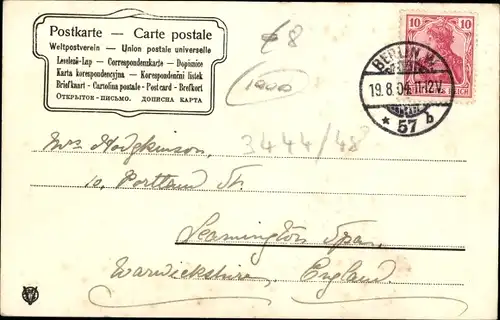 Postkarte — Carte postale
Weltpostverein — Union postale universelle
Levelező-Lap — Correspondenzkarte — Dopisnice
Karta korespondencyjna — Korespondenční lístek
Briefkaart - Cartolina postale - Postcard - Brefkort
ОТКРЫТОЕ ПИСЬМО. ДОПИСНА КАРТА
€8
1000
10 10
BERLIN W.
19.8.04. 11-12V.
* 57 b
REICH
3444/48
Mrs Hodgkinson,
10, Portland St.
Leamington Spa,
Warwickshire, England.